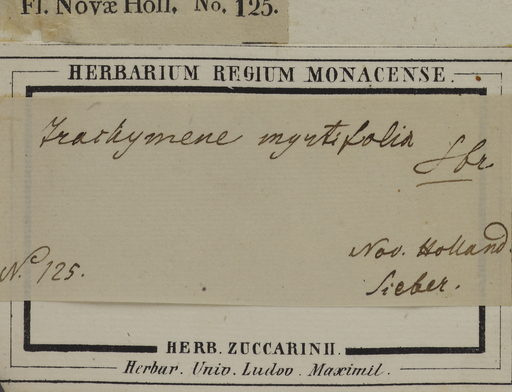 Fl. Novæ Holl. No. 125.
HERBARIUM REGIUM MONACENSE.
Trachymene myrtifolia
Sbr
Nov. Holland.
No 125.
Sieber.
HERB. ZUCCARINII.
Herbar. Univ. Ludov. Maximil.